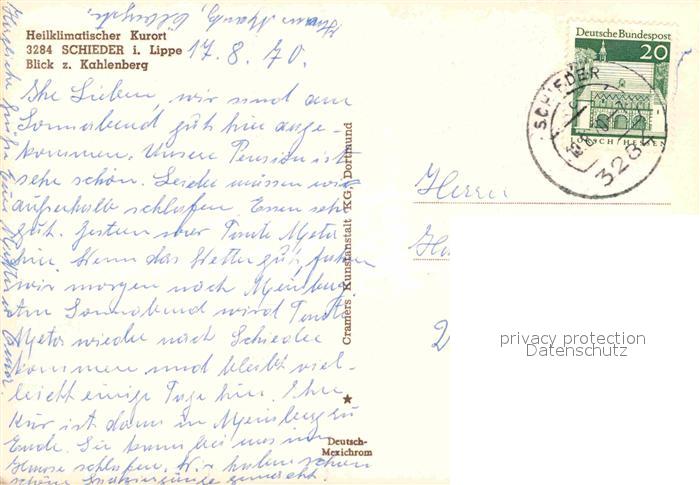 Heilklimatischer Kurort
3284 SCHIEDER i. Lippe
Blick z. Kahlenberg
17.8.70.
Ihr Lieben, wir sind am
Sonnabend gut hier ange-
kommen. Unsere Pension ist
sehr schön. Leider müssen wir
außerhalb schlafen. Essen sehr
gut. Gestern war Tante Meta
hier. Wenn das Wetter gut, fahren
wir morgen nach Meinberg.
Am Sonnabend wird Tante
Meta wieder nach Schieder
kommen und bleibt viel-
leicht einige Tage hier. Ihre
Kur ist dann in Meinberg zu
Ende. Sie kann bei uns im
Hause schlafen. Wir haben schon
schöne Spaziergänge gemacht.
Herzliche Grüße Eure Mutter u. Oma
Cramers Kunstanstalt KG, Dortmund
Deutsch-
Mexichrom
Deutsche Bundespost
20
LORSCH / HESSEN
SCHIEDER
3284
Herrn
privacy protection
Datenschutz